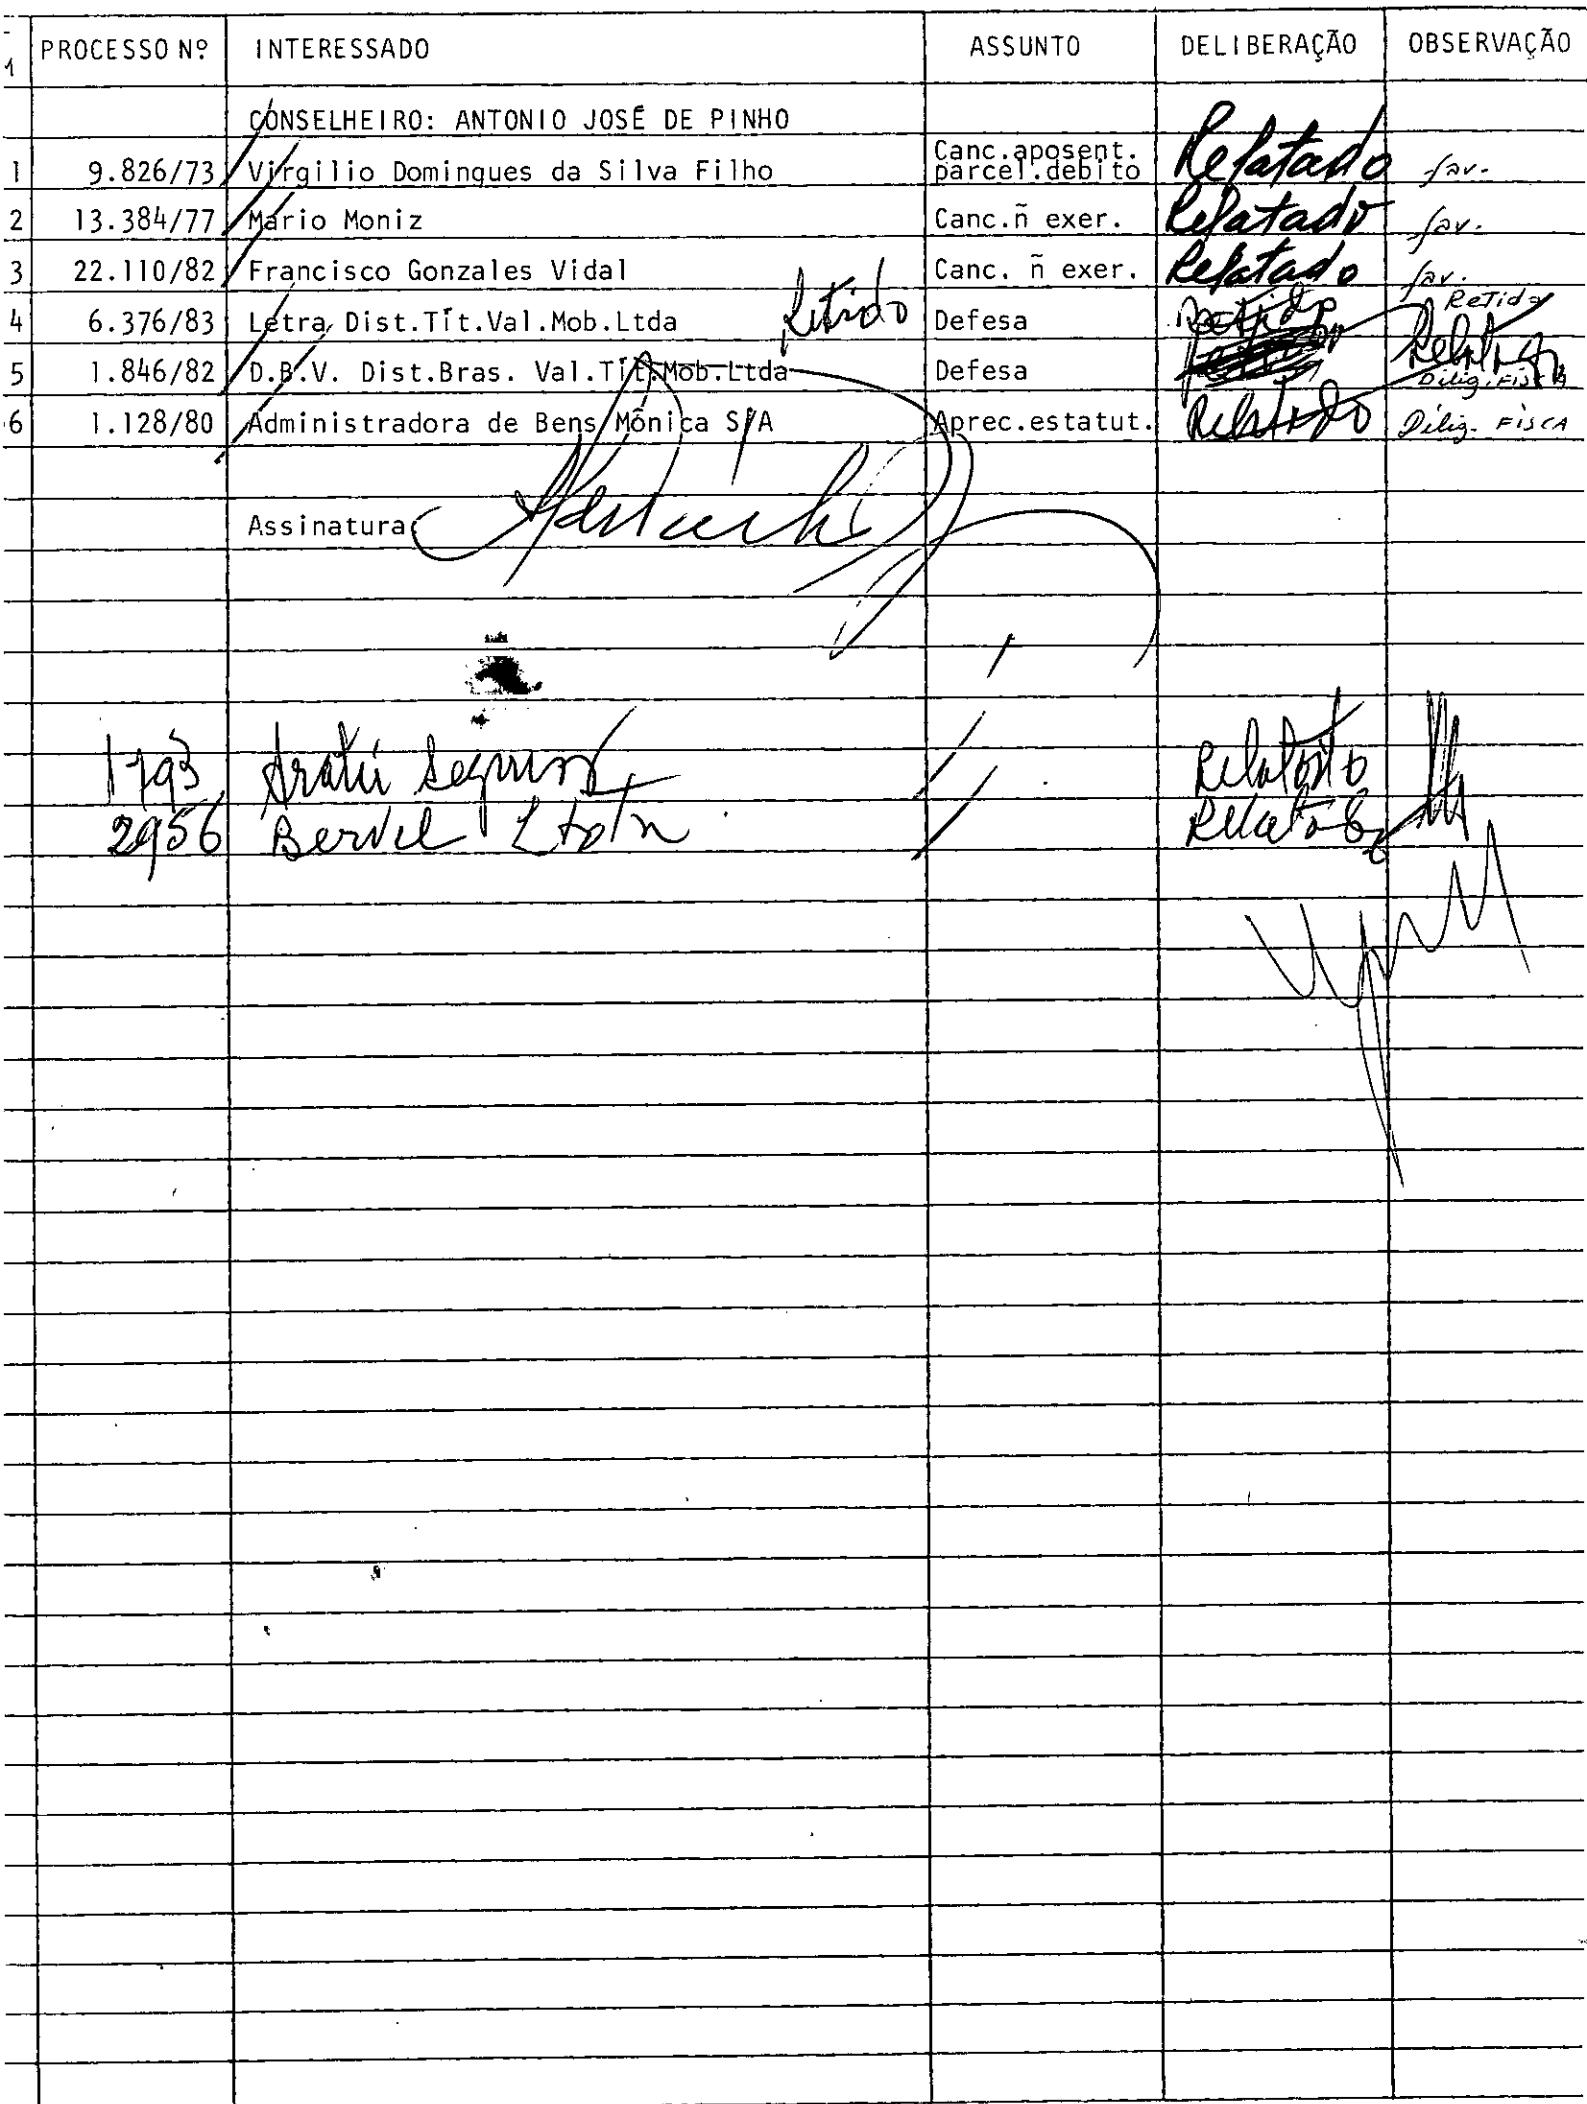 PROCESSO Nº INTERESSADO ASSUNTO DELIBERAÇÃO OBSERVAÇÃO
CONSELHEIRO: ANTONIO JOSÉ DE PINHO
1 9.826/73 Virgilio Domingues da Silva Filho Canc.aposent. parcel.debito Relatado fav.
2 13.384/77 Mário Moniz Canc.ñ exer. Relatado fav.
3 22.110/82 Francisco Gonzales Vidal Canc. ñ exer. Relatado fav.
4 6.376/83 Letra Dist.Tít.Val.Mob.Ltda Retido Defesa Retido Retido
5 1.846/82 D.B.V. Dist.Bras. Val.Tít.Mob.Ltda Defesa Dilig. FISCA
6 1.128/80 Administradora de Bens Mônica S/A Aprec.estatut. Relatado Dilig. FISCA
Assinatura
1793 Aratú Seguros Relatado
2956 Bervel Ltda Relatado